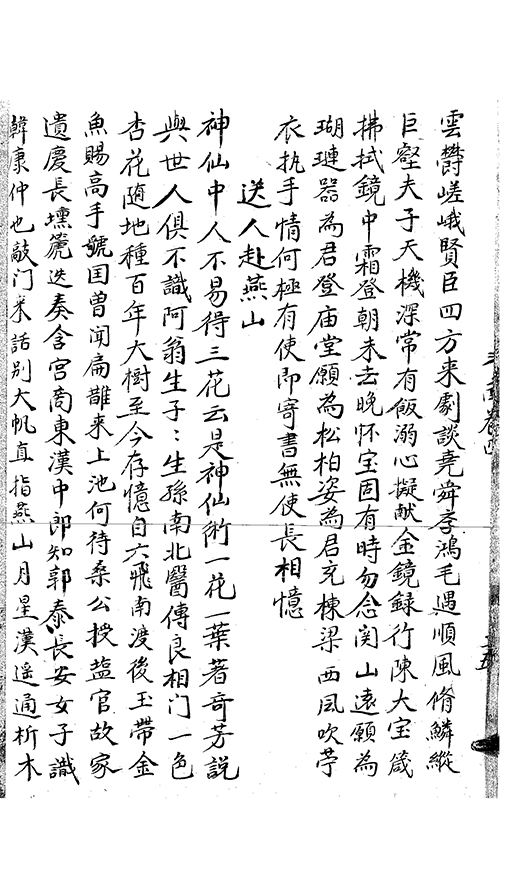 雲欝嵯峨賢臣四方来劇談堯舜存鴻毛遇順風脩鱗縱
巨壑夫子天機深常有飯溺心擬献金鏡録行陳大宝箴
拂拭鏡中霜登朝未去晚怀宝固有時勿念関山遠願為
瑚璉器為君登庙堂願為松柏姿為君充棟梁西风吹苧
衣执手情何極有使即寄書無使長相憶
送人赴燕山
神仙中人不易得三花云是神仙術一花一葉著奇芳説
與世人俱不識阿翁生子:生孫南北醫傳良相门一色
杏花随地種百年大樹至今存憶自六飛南渡後玉帶金
魚賜高手號囯曽闻扁鵲来上池何待桑公授盐官故家
遺慶長壎篪迭奏含宫商東漢中郎知郭泰長安女子識
韓康仲也敲门来話别大帆直指燕山月星漢遥通析木